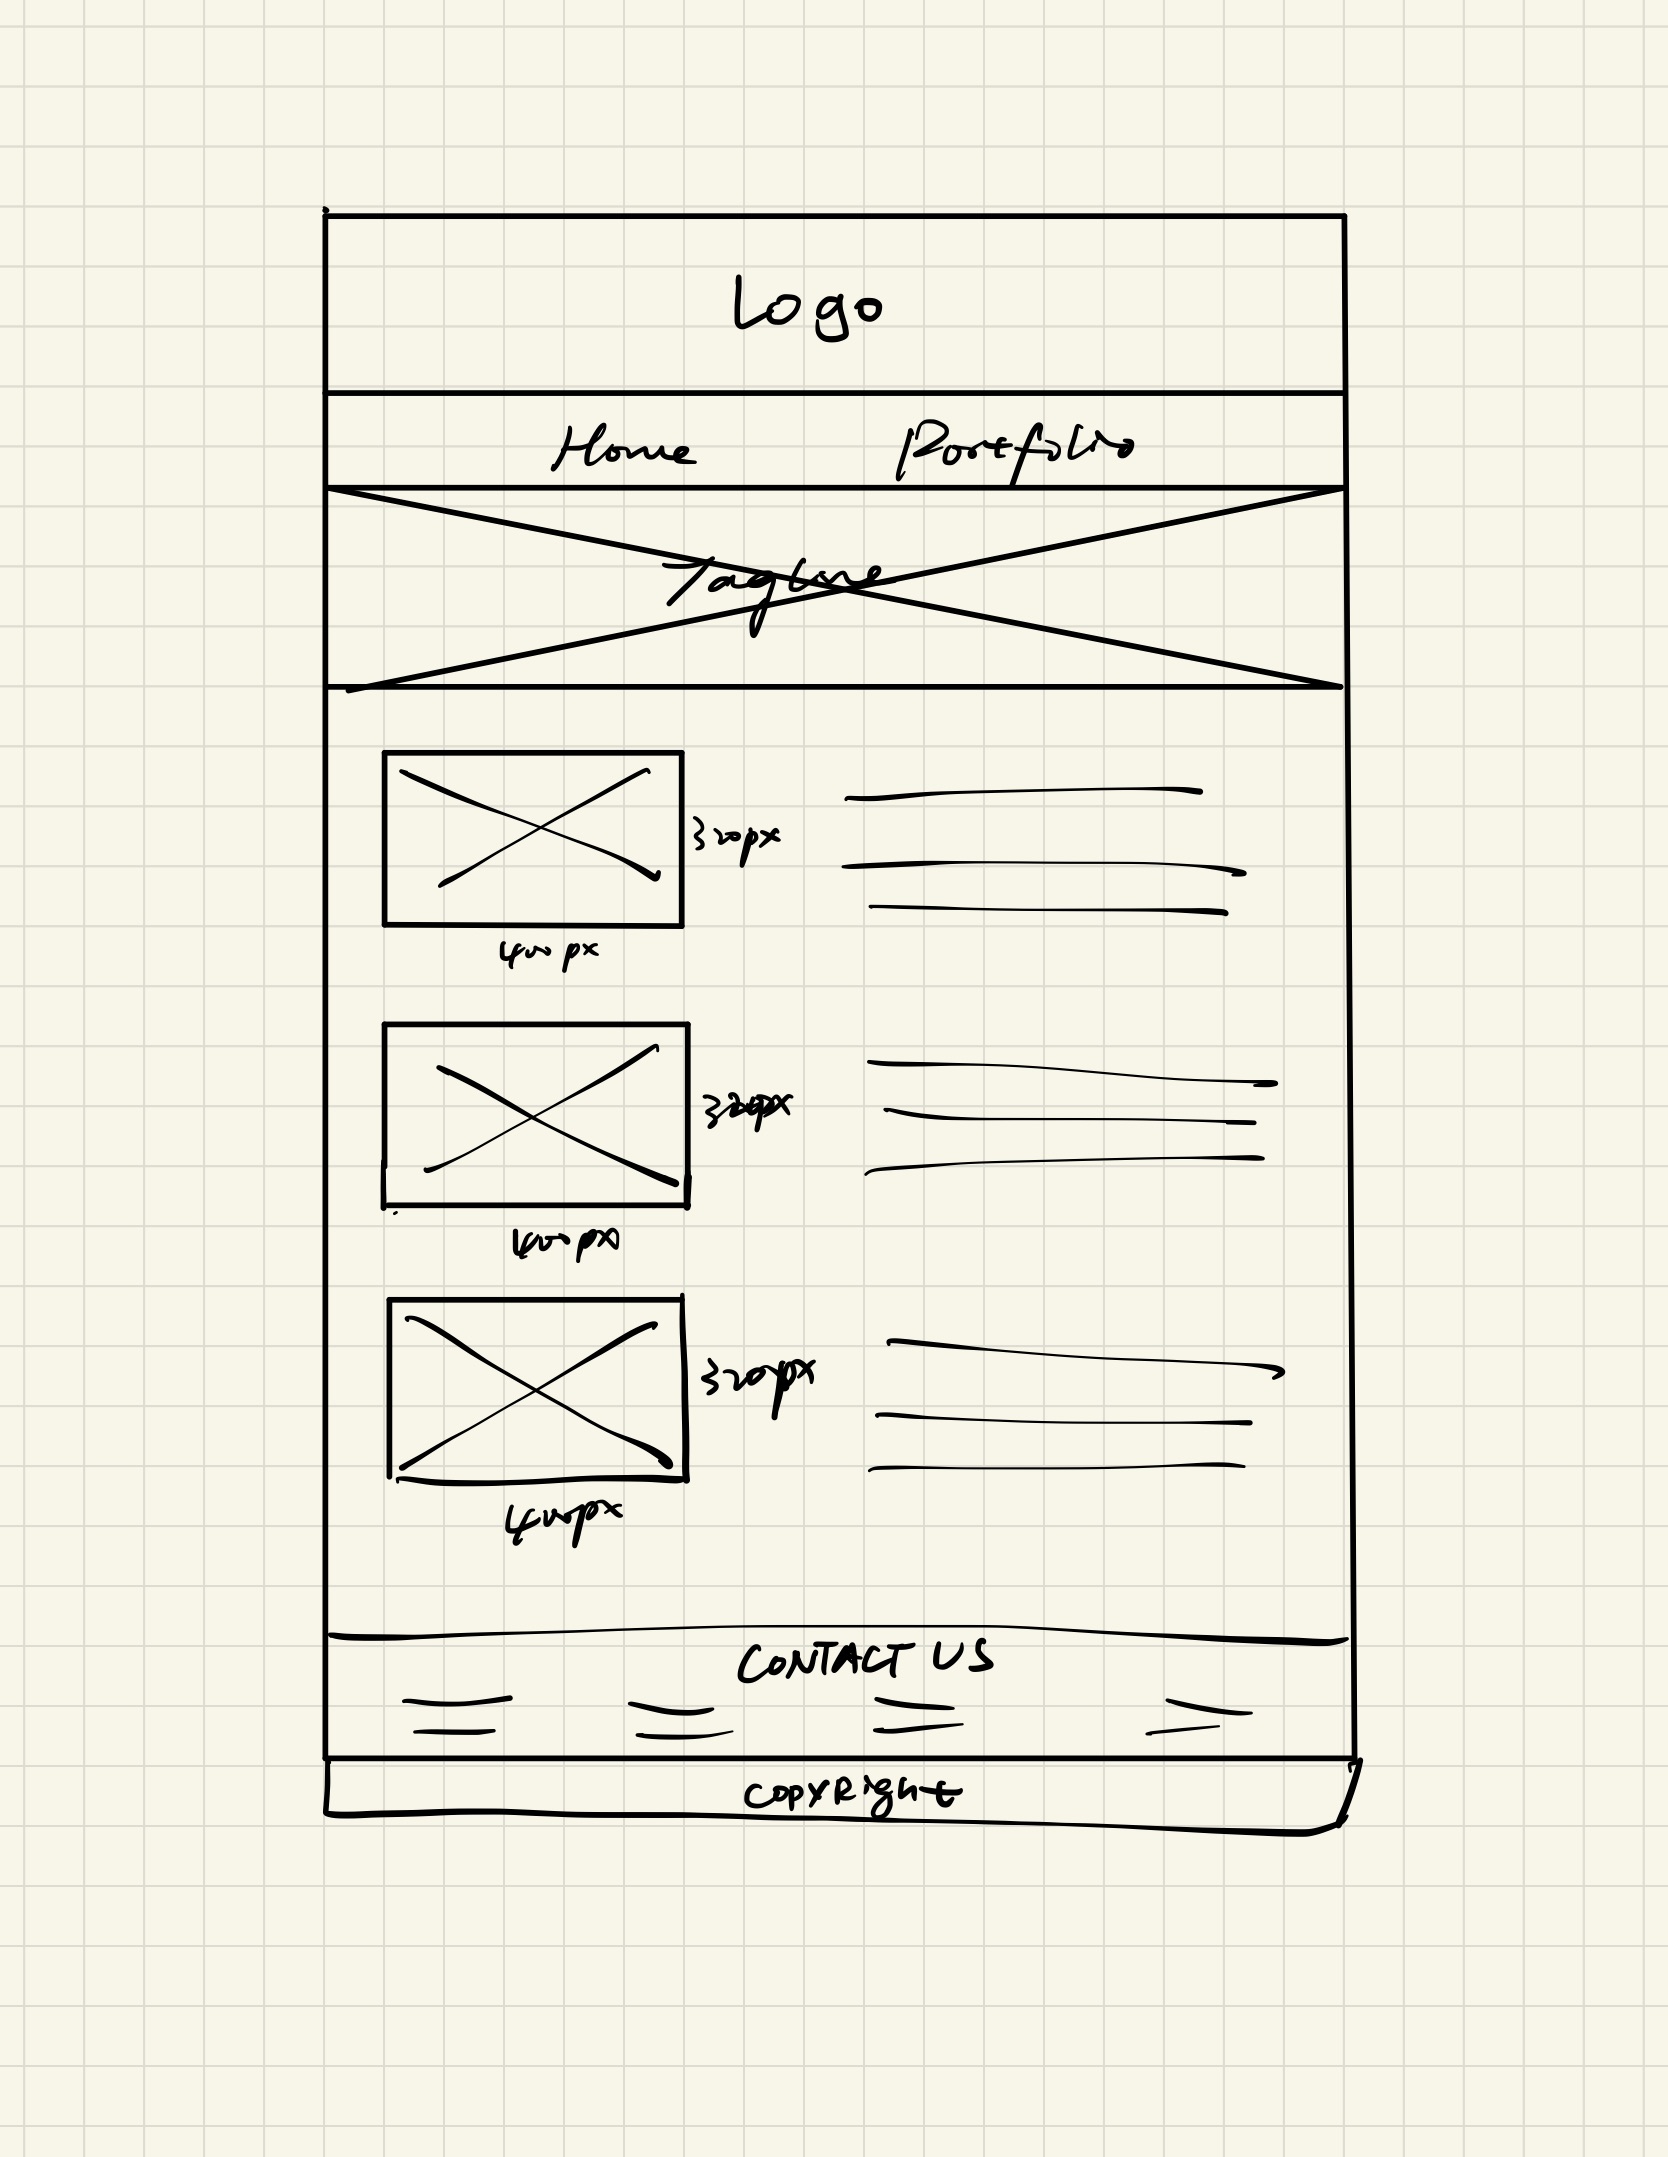 Logo
Home Portfolio
Tagline
320px
400 px
320px
400 px
320px
400px
CONTACT US
Copyright